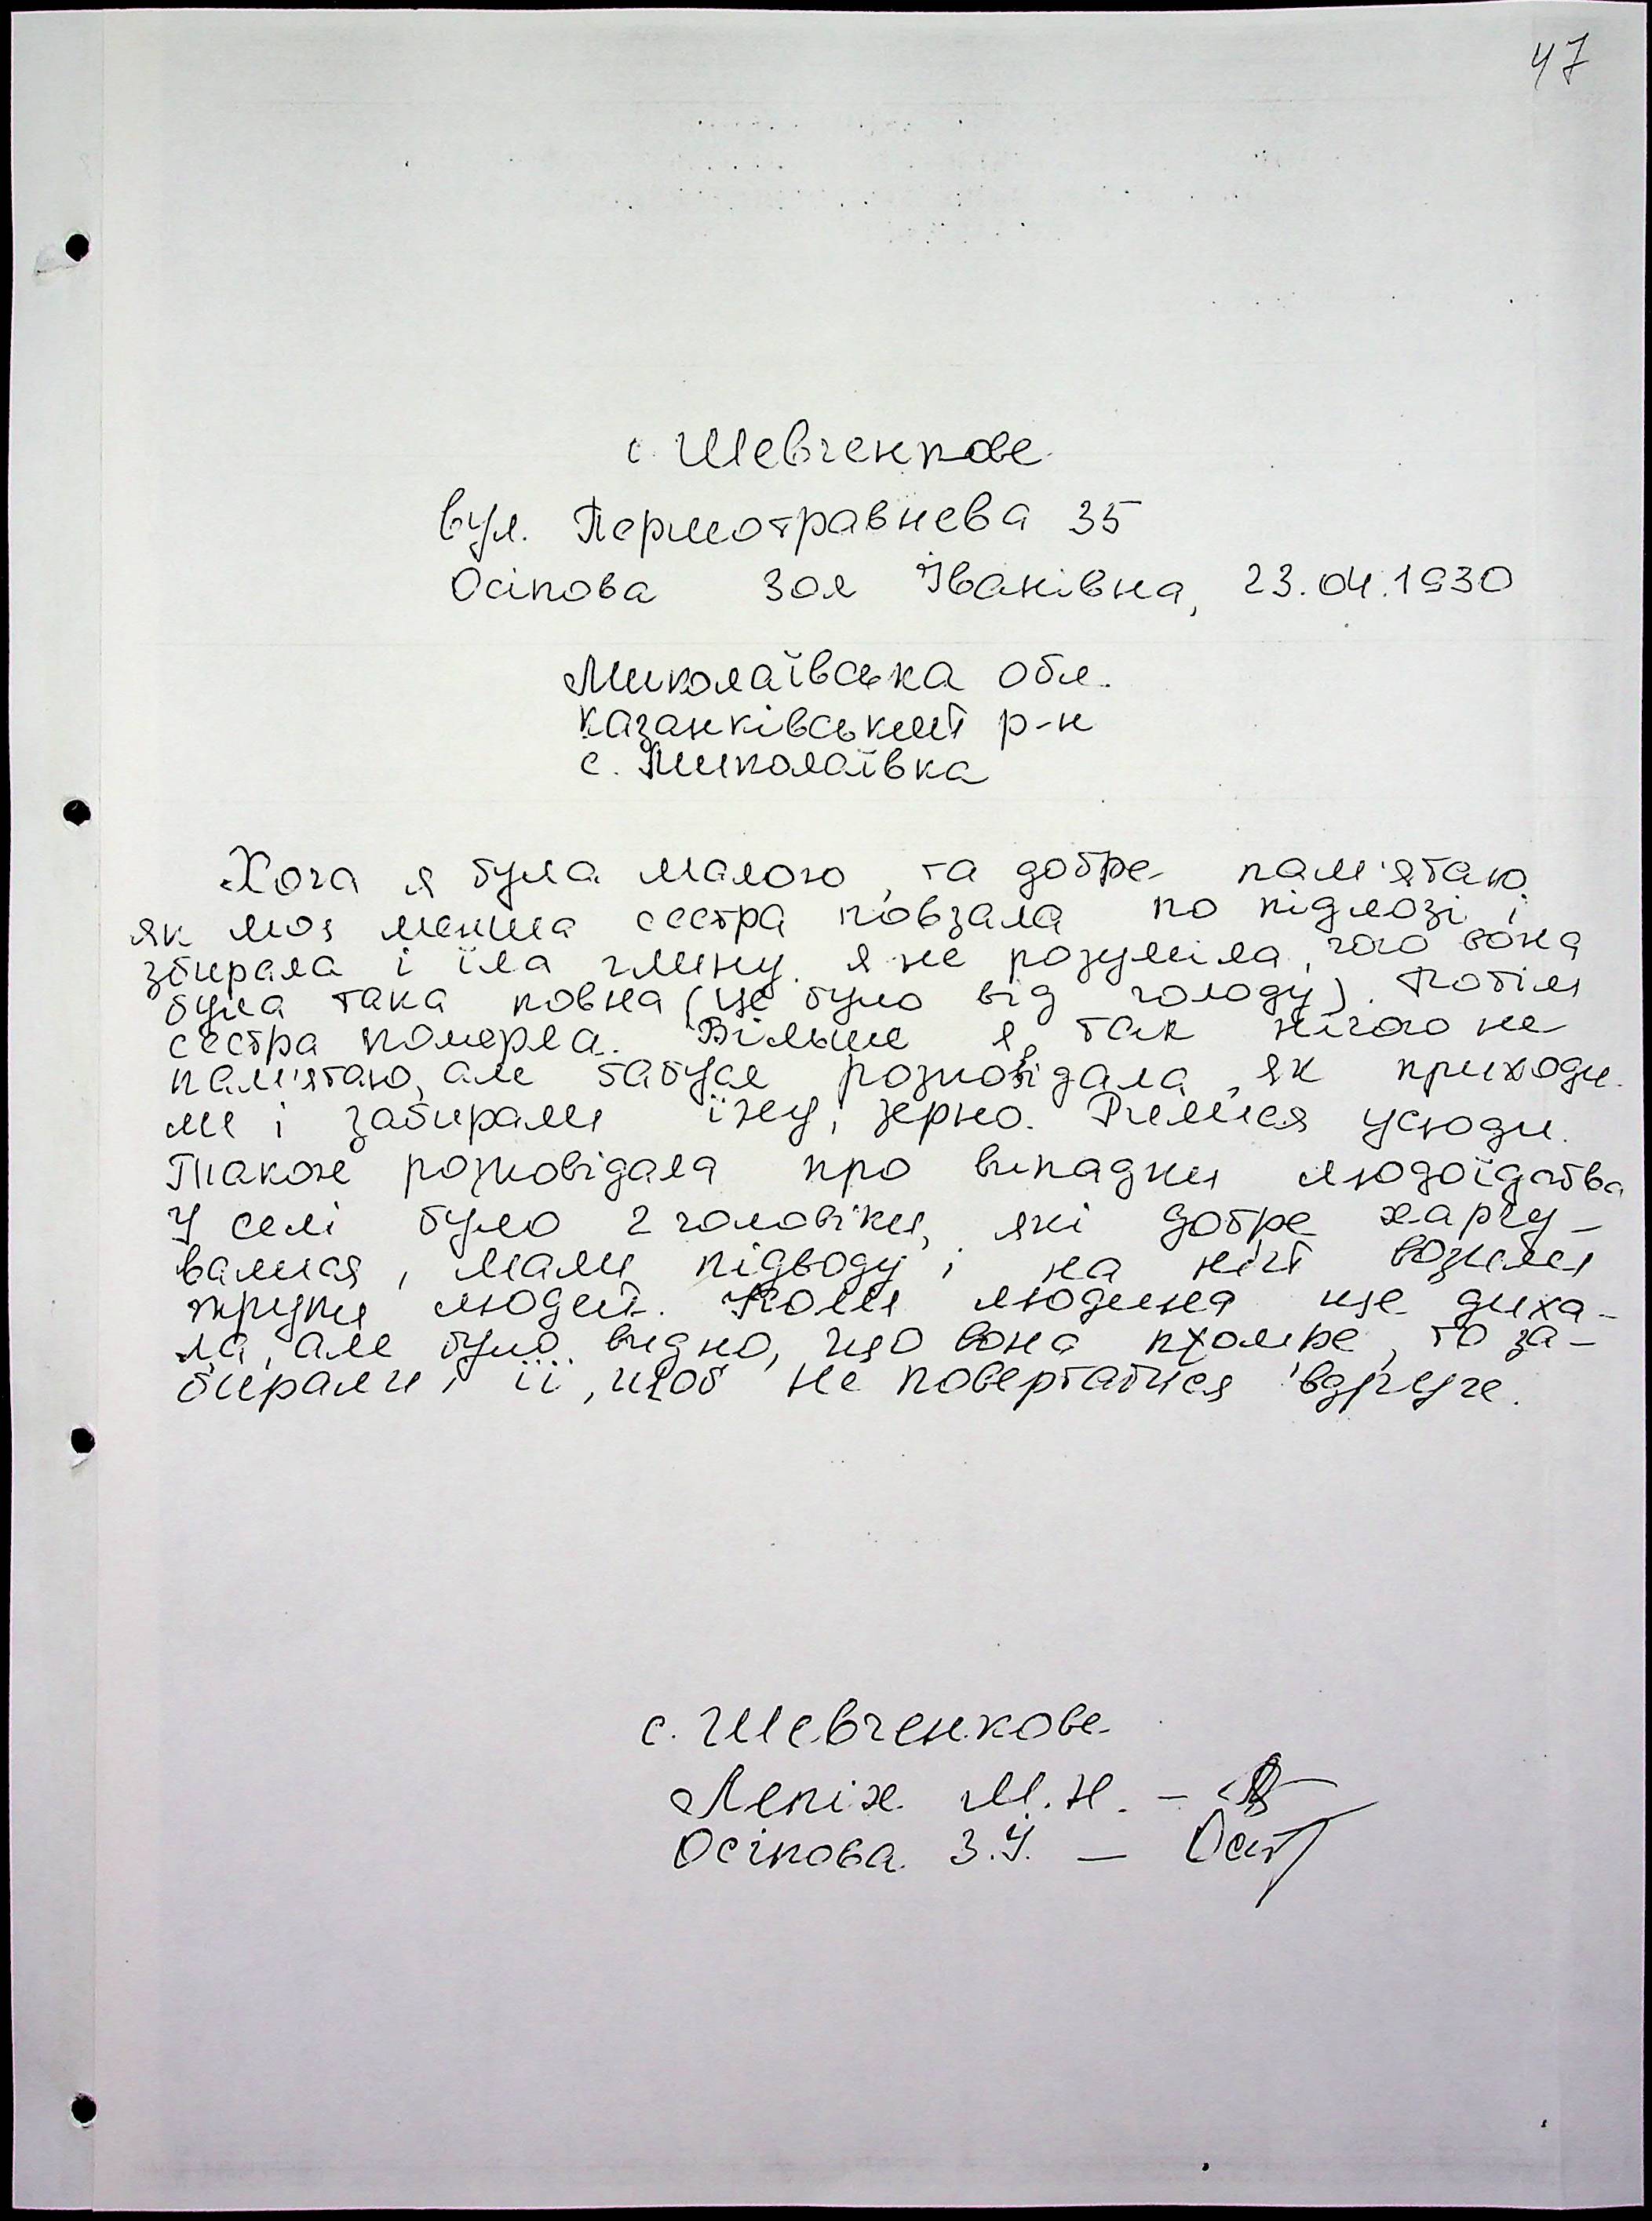 47
с. Шевченкове
вул. Першотравнева 35
Осіпова Зоя Іванівна, 23.04.1930
Миколаївська обл.
Казанківський р-н
с. Миколаївка
Хоча я була малою, та добре пам'ятаю
як моя менша сестра повзала по підлозі і
збирала і їла глину. Я не розуміла, чого вона
була така повна (це було від голоду). Потім
сестра померла. Більше я так нічого не
пам'ятаю, але бабуся розповідала, як приходи
ли і забирали їжу, зерно. Рилися усюди.
Також розповідала про випадки людоїдства
У селі було 2 чоловіки, які добре харчу-
валися, мали підводу і на ній возили
трупи людей. Коли людина ще диха-
ла, але було видно, що вона помре, то за-
бирали її, щоб не повертатися вдруге.
с. Шевченкове
Лепіх М.Н. –
Осіпова З.І. –